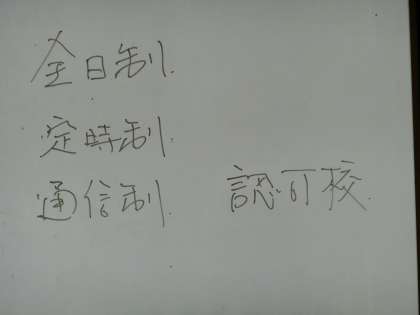 全日制
定時制
通信制 認可校